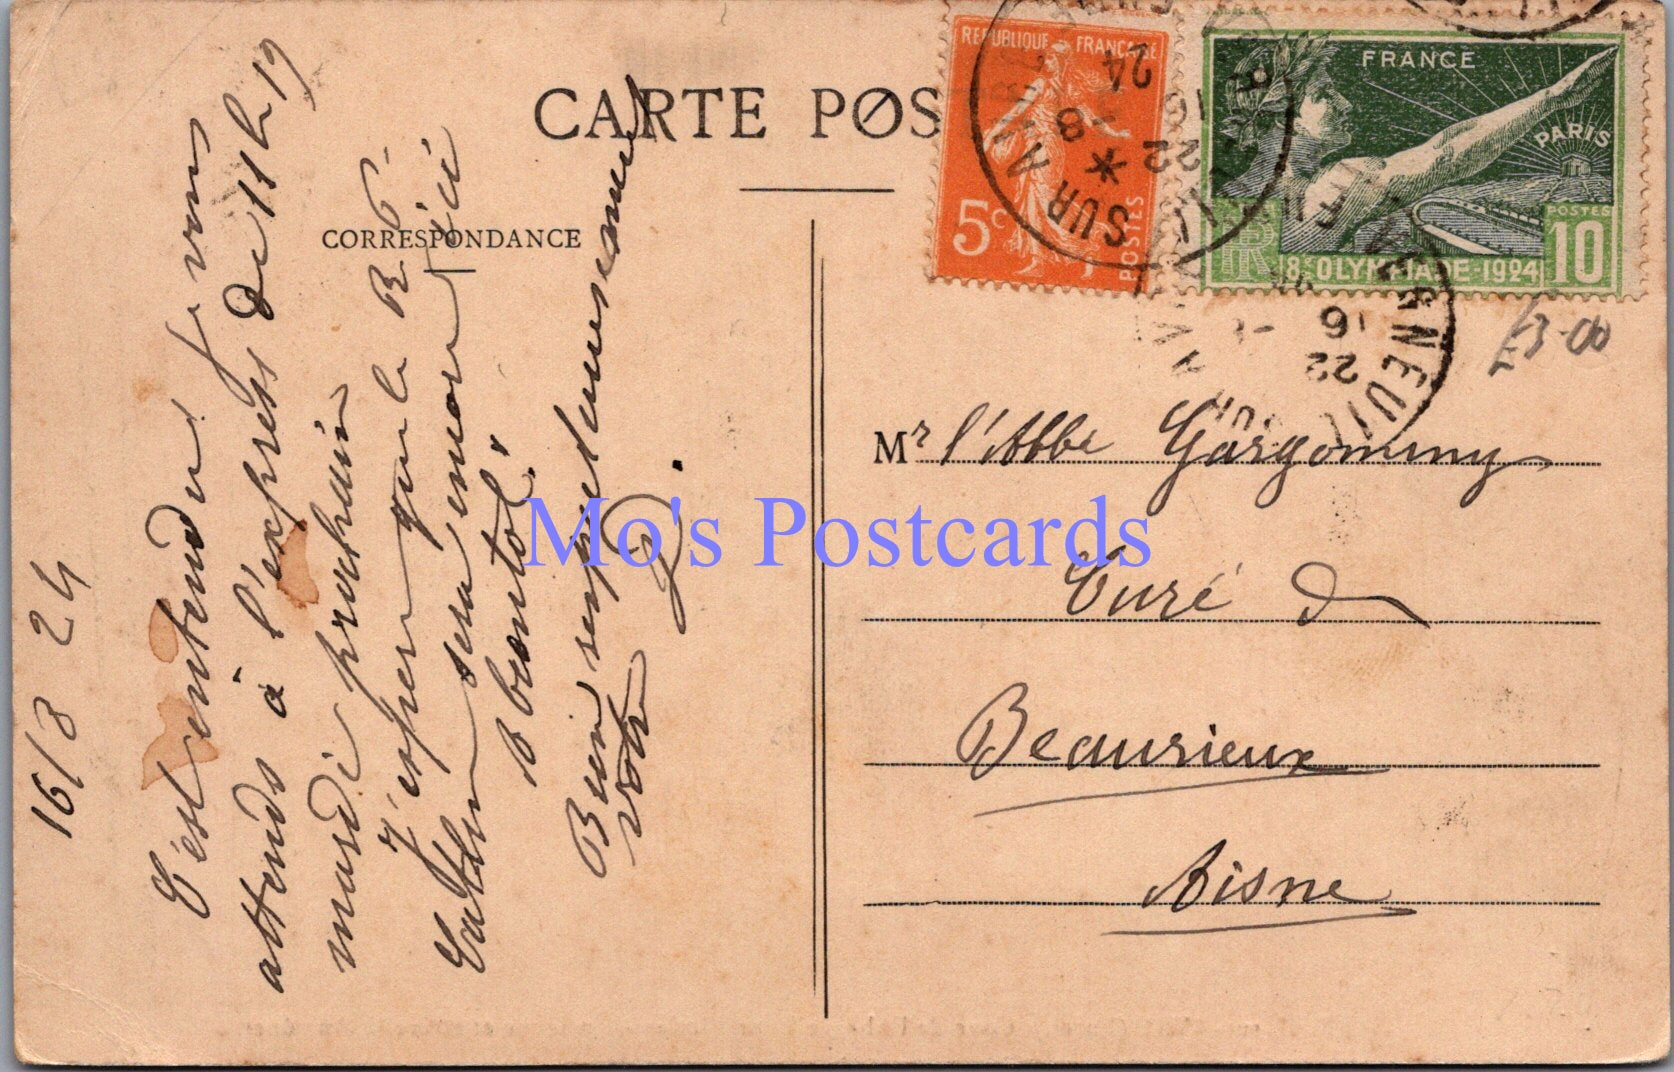 CARTE POS
CORRESPONDANCE
16/8 24
C'est entendu! je vous
attends à l'express de 11h 19
mardi prochain
J'espère que le R. P.
sera encore ici
A bientôt!
Bien respectueusement
votre
REPUBLIQUE FRANÇAISE
5c
POSTES
FRANCE
PARIS
POSTES
RF
8e OLYMPIADE-1924
10
SUR A
22
16 -8
24
VERNEUIL
22
16
£3-00
Mr l'Abbé Gargommy
Curé de
Beaurieux
Aisne
Mo's Postcards